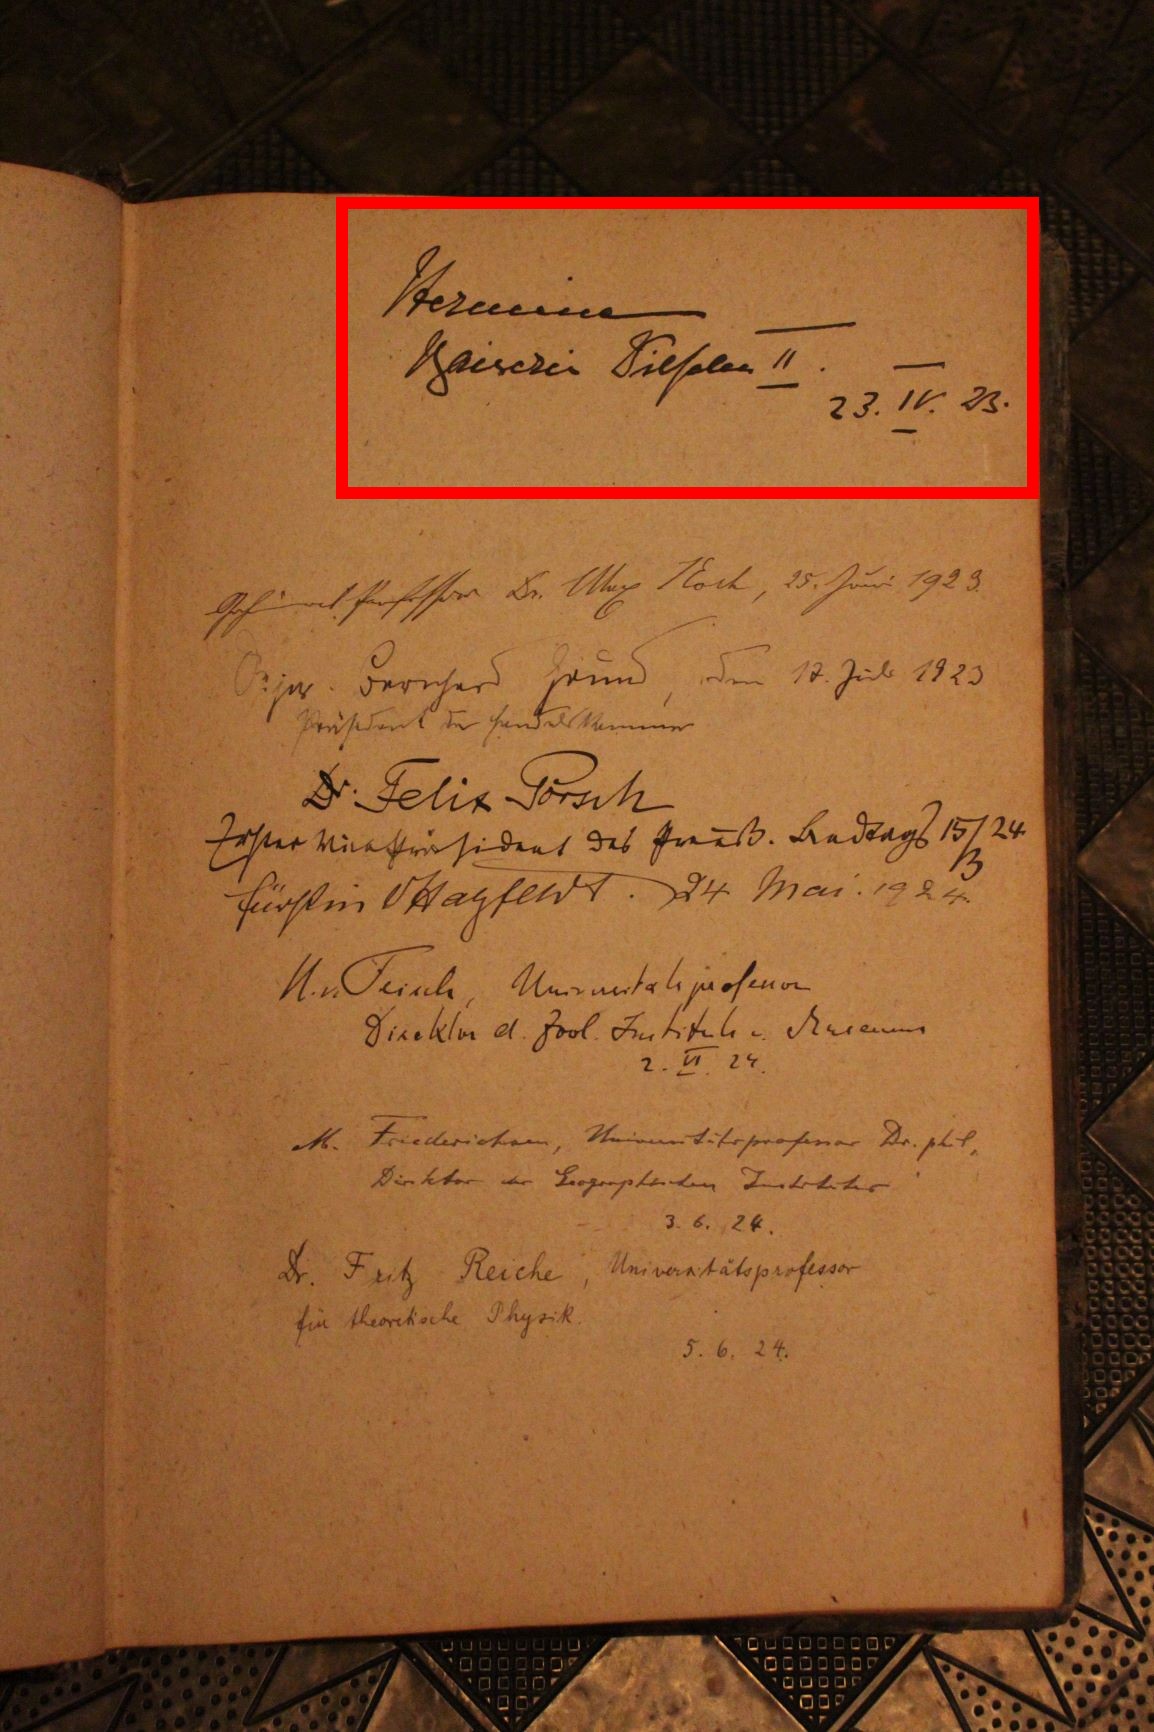 Hermine
Kaiserin Wilhelm II.
23. IV. 23.
Geheimrat Professor Dr. Max Koch, 25. Juni 1923.
Dr. jur. Bernhard Grund, den 17. Juli 1923
Präsident der Handelskammer
Dr. Felix Porsch
Erster Vizepräsident des Preuß. Landtags 15/3 24
Fürstin Hatzfeldt. 24 Mai. 1924.
Universitätsprofessor
Direktor d. Zool. Instituts u. Museums
2. VI. 24.
M. Friederichsen, Universitätsprofessor Dr. phil,
Direktor des Geographischen Institutes
3. 6. 24.
Dr. Fritz Reiche, Universitätsprofessor
für theoretische Physik.
5. 6. 24.